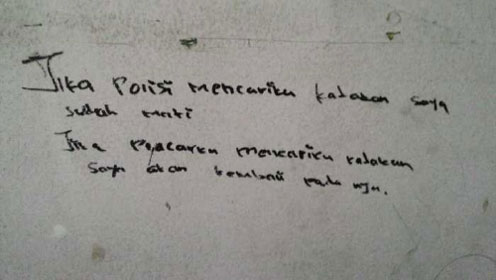 Jika Polisi mencariku katakan saya
sudah mati
Jika Pacarku mencariku katakan
Saya akan kembali pada nya.